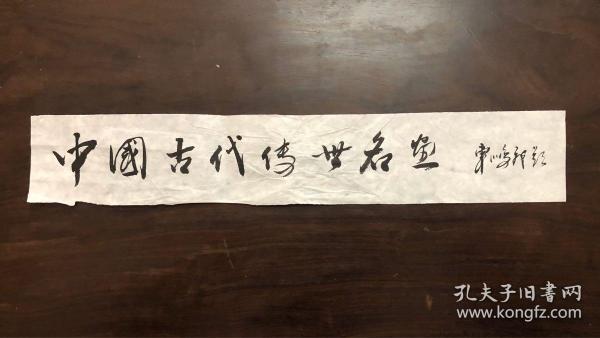 中國古代传世名画
孔夫子旧書网
www.kongfz.com